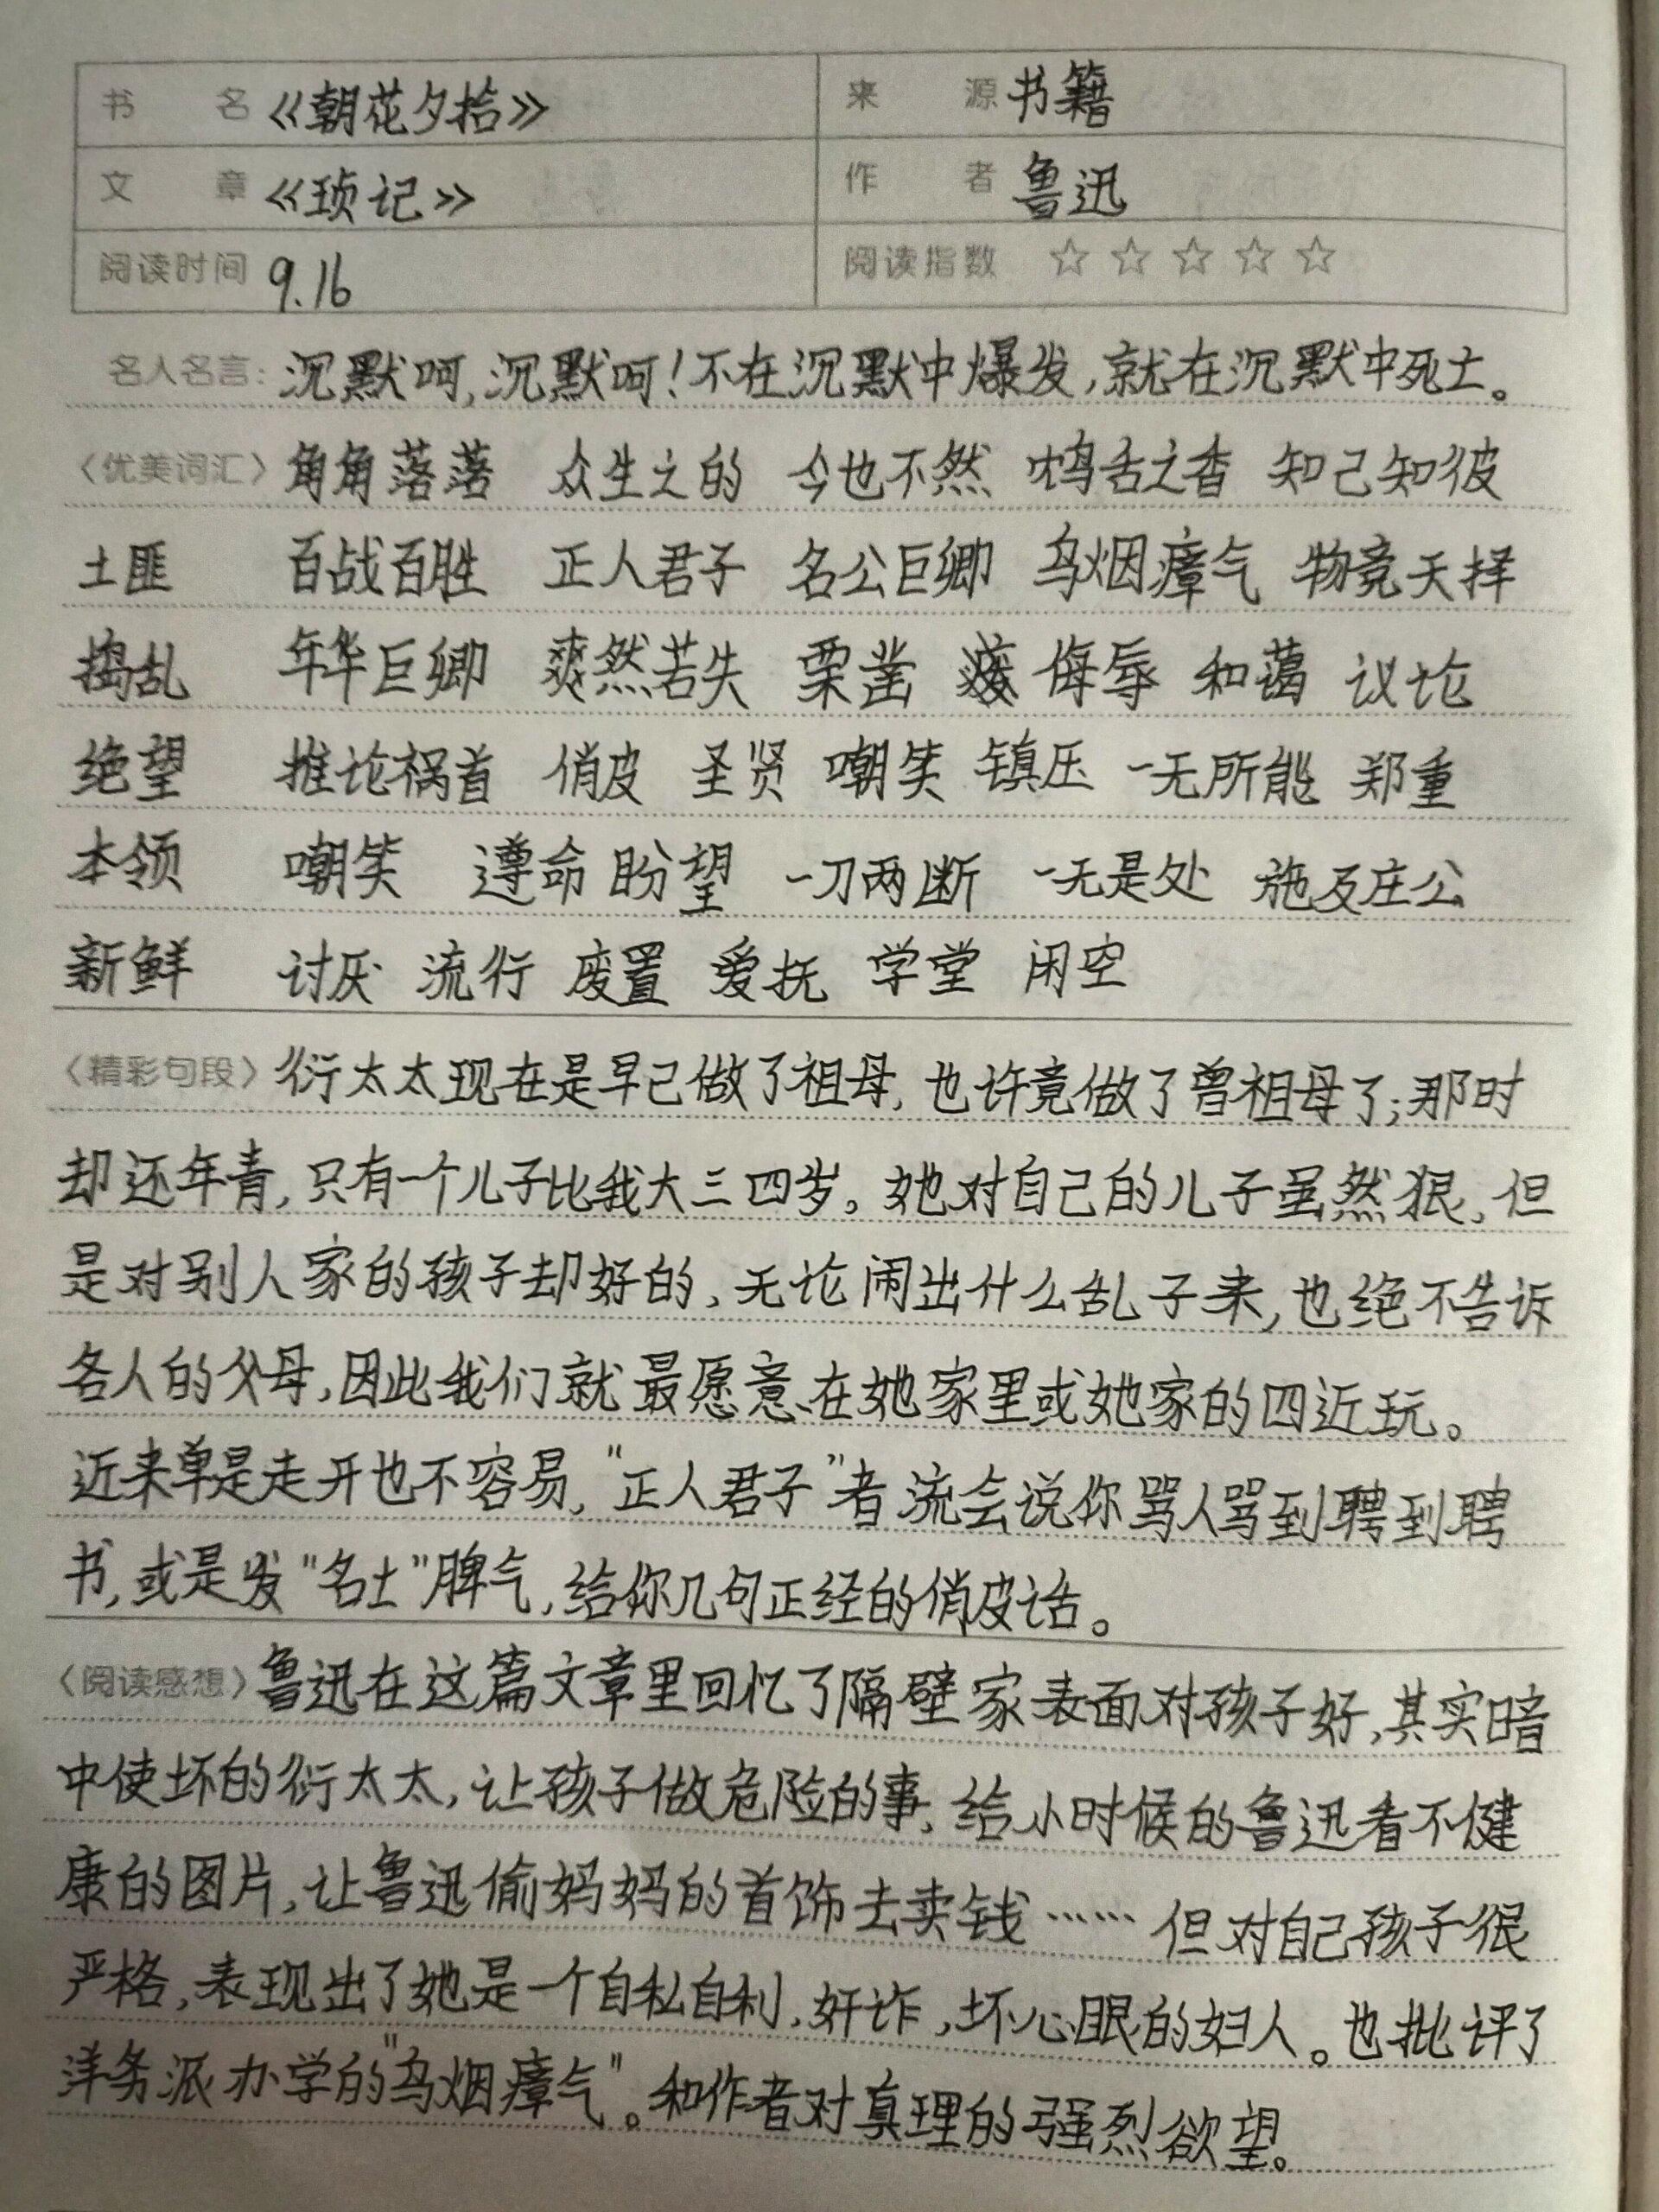 书 名 《朝花夕拾》 来 源 书籍
文 章 《琐记》 作 者 鲁迅
阅读时间 9.16 阅读指数 ☆☆☆☆☆
名人名言: 沉默呵,沉默呵!不在沉默中爆发,就在沉默中死亡。
〈优美词汇〉角角落落 众生之的 今也不然 鸡舌之香 知己知彼
土匪 百战百胜 正人君子 名公巨卿 乌烟瘴气 物竞天择
捣乱 年华巨卿 爽然若失 栗凿 侮辱 和蔼 议论
绝望 推论祸首 俏皮 圣贤 嘲笑 镇压 一无所能 郑重
本领 嘲笑 遵命 盼望 一刀两断 一无是处 施及庄公
新鲜 讨厌 流行 废置 爱抚 学堂 闲空
〈精彩句段〉衍太太现在是早已做了祖母,也许竟做了曾祖母了;那时
却还年青,只有一个儿子比我大三四岁。她对自己的儿子虽然狠,但
是对别人家的孩子却好的,无论闹出什么乱子来,也绝不告诉
各人的父母,因此我们就最愿意在她家里或她家的四近玩。
近来单是走开也不容易,“正人君子”者流会说你骂人骂到聘到聘
书,或是发“名士”脾气,给你几句正经的俏皮话。
〈阅读感想〉鲁迅在这篇文章里回忆了隔壁家表面对孩子好,其实暗
中使坏的衍太太,让孩子做危险的事,给小时候的鲁迅看不健
康的图片,让鲁迅偷妈妈的首饰去卖钱……但对自己孩子很
严格,表现出了她是一个自私自利,奸诈,坏心眼的妇人。也批评了
洋务派办学的“乌烟瘴气”。和作者对真理的强烈欲望。